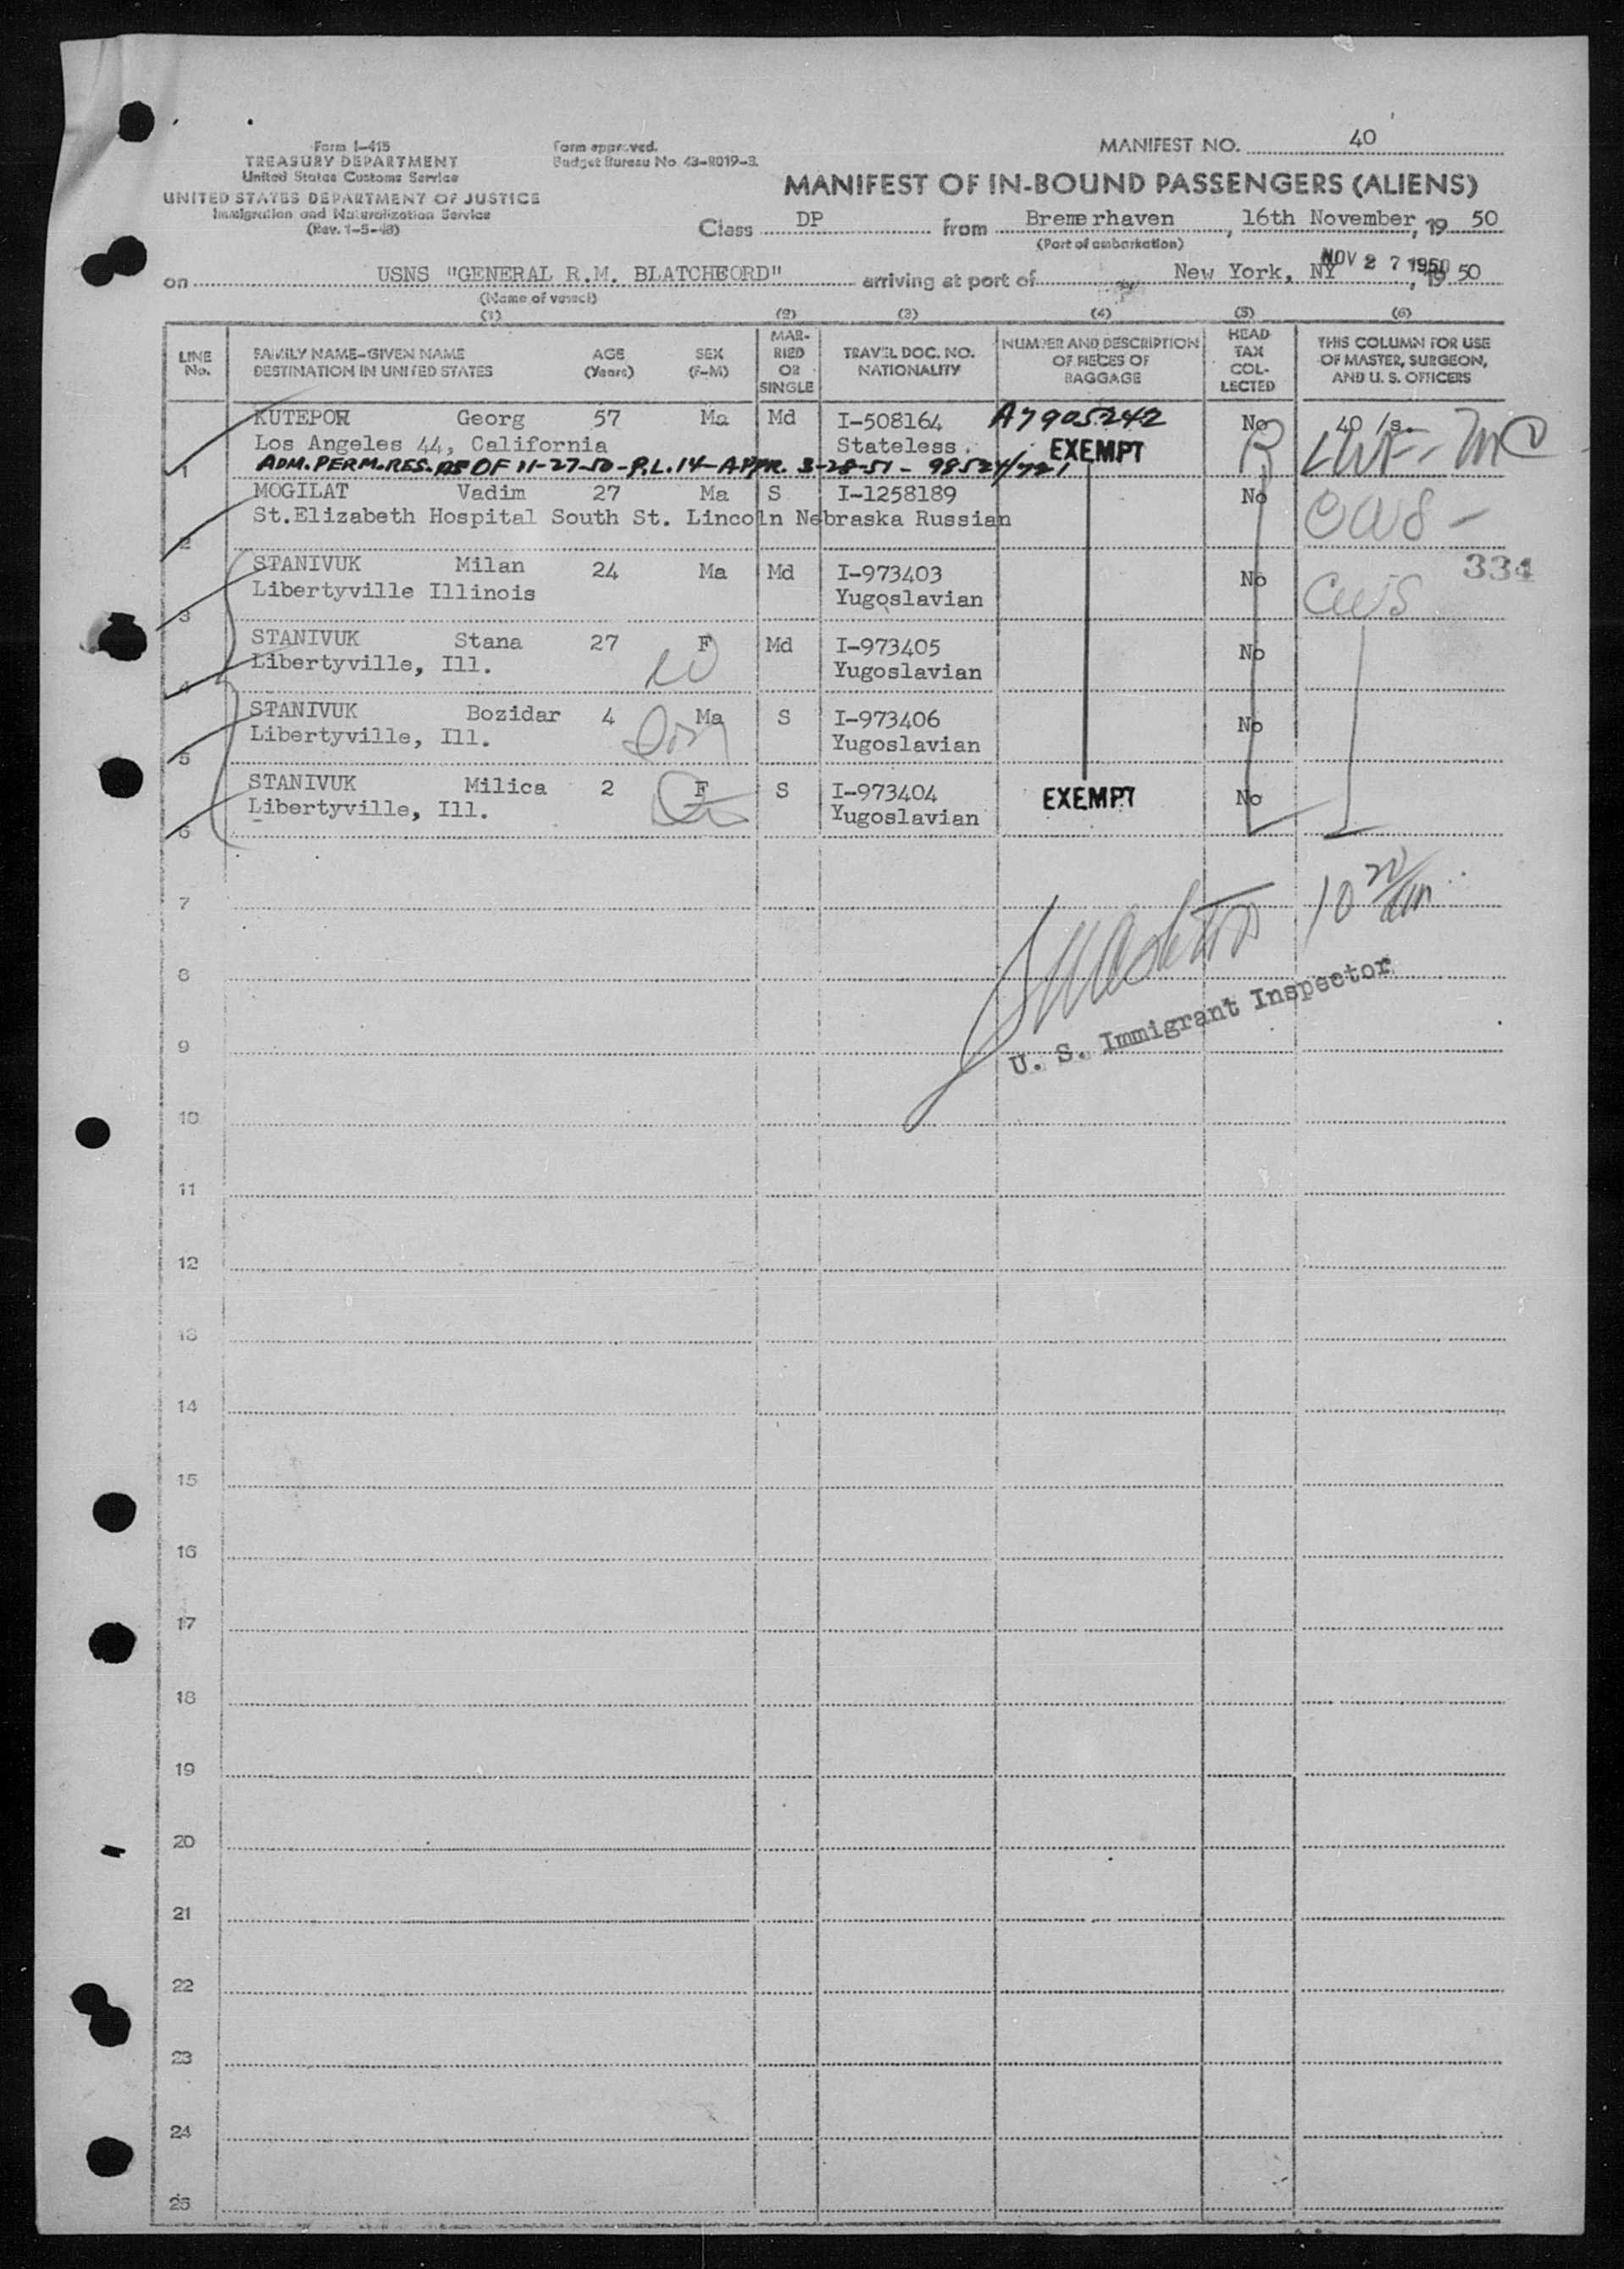 Form I-415
TREASURY DEPARTMENT
United States Customs Service
UNITED STATES DEPARTMENT OF JUSTICE
Immigration and Naturalization Service
(Rev. 1-5-48)
Form approved.
Budget Bureau No. 43-R019-3.
MANIFEST NO. 40
MANIFEST OF IN-BOUND PASSENGERS (ALIENS)
Class DP from Bremerhaven, 16th November, 19 50
(Port of embarkation)
on USNS "GENERAL R.M. BLATCHFORD" arriving at port of New York, NY NOV 27 1950, 19 50
(Name of vessel)
(1) (2) (3) (4) (5) (6)
LINE No. FAMILY NAME-GIVEN NAME DESTINATION IN UNITED STATES AGE (Years) SEX (F-M) MARRIED OR SINGLE TRAVEL DOC. NO. NATIONALITY NUMBER AND DESCRIPTION OF PIECES OF BAGGAGE HEAD TAX COLLECTED THIS COLUMN FOR USE OF MASTER, SURGEON, AND U. S. OFFICERS
1 KUTEPOW Georg 57 Ma Md I-508164 A7905242 No 40 /s.
Los Angeles 44, California Stateless. EXEMPT R LWF-
ADM. PERM. RES. AS OF 11-27-50 - P.L. 14 - APPR. 3-28-51 - 98524/721
2 MOGILAT Vadim 27 Ma S I-1258189 No
St.Elizabeth Hospital South St. Lincoln Nebraska Russian
334
3 STANIVUK Milan 24 Ma Md I-973403 No
Libertyville Illinois Yugoslavian CWS
4 STANIVUK Stana 27 F Md I-973405 No
Libertyville, Ill. Yugoslavian
5 STANIVUK Bozidar 4 Ma S I-973406 No
Libertyville, Ill. Yugoslavian
6 STANIVUK Milica 2 F S I-973404 EXEMPT No
Libertyville, Ill. Yugoslavian
10 20 am
U. S. Immigrant Inspector
7
8
9
10
11
12
13
14
15
16
17
18
19
20
21
22
23
24
25